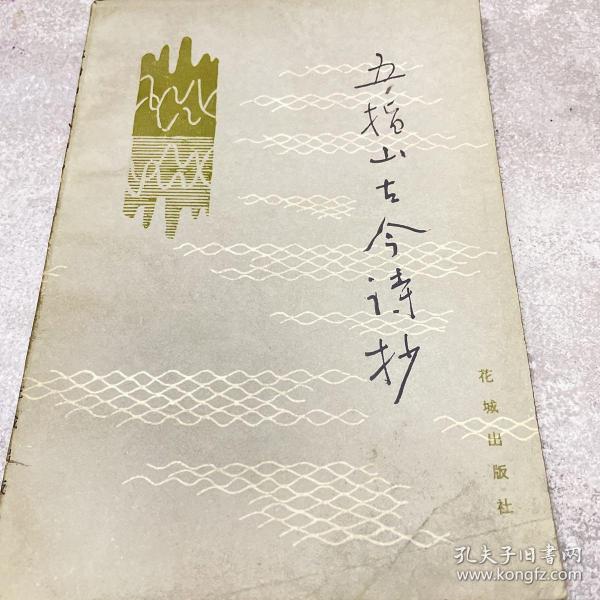 五指山古今诗抄
花城出版社
孔夫子旧書网
www.kongfz.com